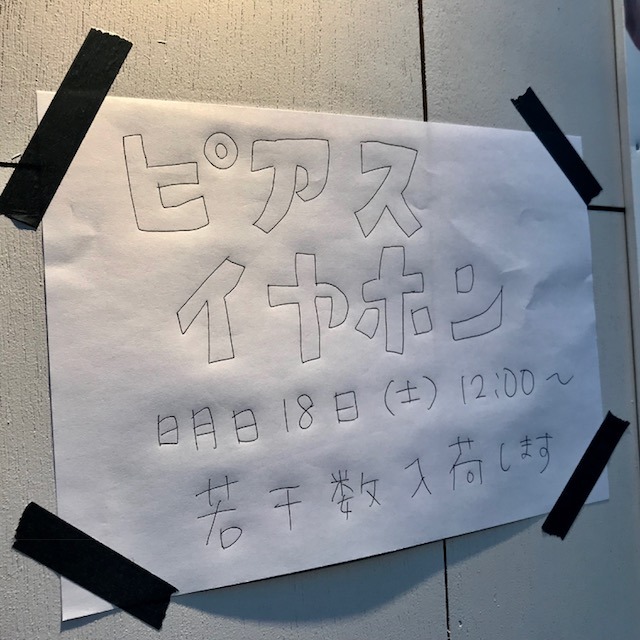 ピアス
イヤホン
明日 18日(土) 12:00〜
若干数入荷します